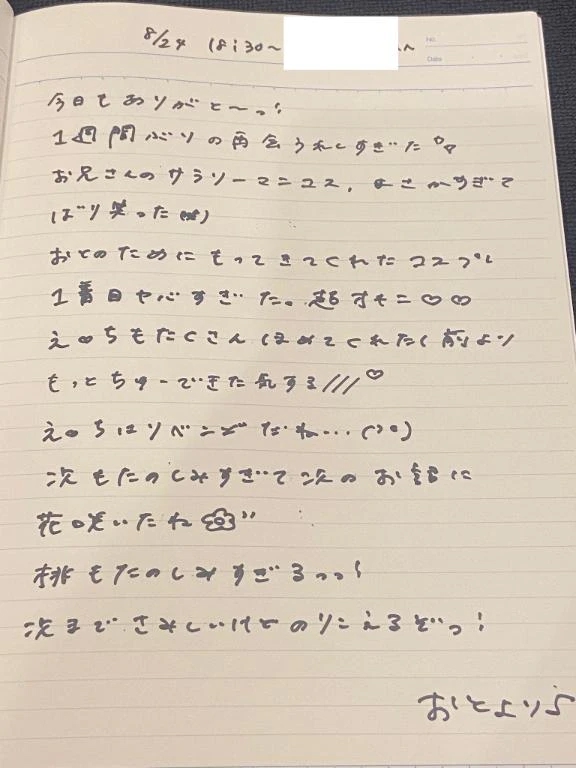 8/24 18:30〜
No.
Date
今日もありがと〜っ!
1週間ぶりの再会うれしすぎた♡
お兄さんのサラリーマンコス、よさがすぎて
ばり笑った(笑)
おとのためにもってきてくれたコスプレ
1着目ヤバすぎた。超すそ=♡♡
えっちもたくさんほめてくれたし前より
もっとちゅーできた気する///♡
えっちはリベンジだね…
次もたのしみすぎて次のお話に
花咲いたね
桃もたのしみすぎるっっ!
次までさみしいけどのりこえるぞっ!
おとより